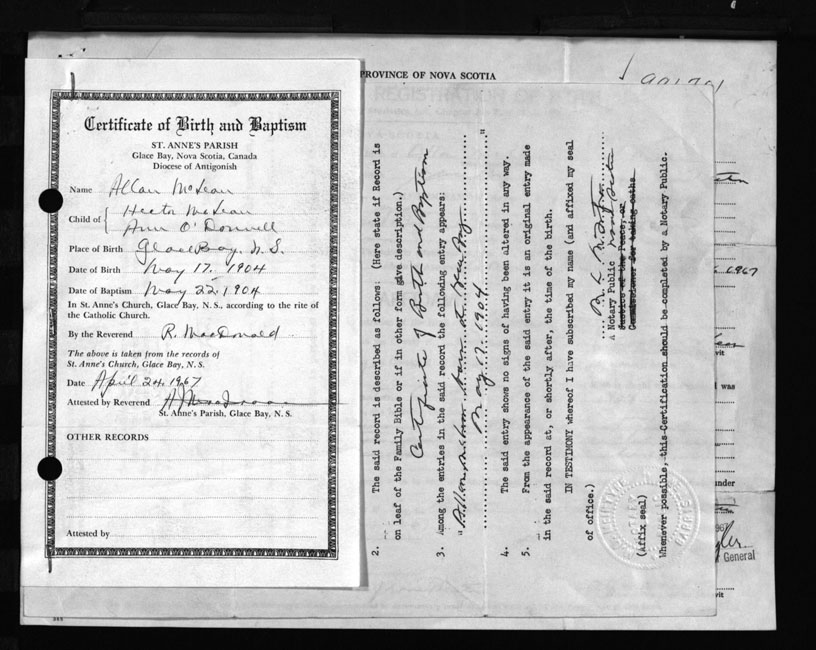 Certificate of Birth and Baptism
ST. ANNE'S PARISH
Glace Bay, Nova Scotia, Canada
Diocese of Antigonish
Name Allan McLean
Child of { Hector McLean
Ann O'Donnell
Place of Birth Glace Bay, N. S.
Date of Birth May 17. 1904
Date of Baptism May 22. 1904
In St. Anne's Church, Glace Bay, N. S., according to the rite of
the Catholic Church.
By the Reverend R. MacDonald
The above is taken from the records of
St. Anne's Church, Glace Bay, N. S.
Date April 24, 1967
Attested by Reverend
St. Anne's Parish, Glace Bay, N. S.
OTHER RECORDS
Attested by
PROVINCE OF NOVA SCOTIA
REGISTRATION OF
2. The said record is described as follows: (Here state if Record is
on leaf of the Family Bible or if in other form give description.)
Certificate of Birth and Baptism
3. Among the entries in the said record the following entry appears:
"Allan McLean born at Glace Bay
May 17. 1904"
4. The said entry shows no signs of having been altered in any way.
5. From the appearance of the said entry it is an original entry made
in the said record at, or shortly after, the time of the birth.
IN TESTIMONY whereof I have subscribed my name (and affixed my seal
of office.)
A Notary Public
Justice of the Peace, or
Commissioner for taking oaths
(Affix seal)
Whenever possible, this Certification should be completed by a Notary Public.
1967
vit
was
under
967
General
vit